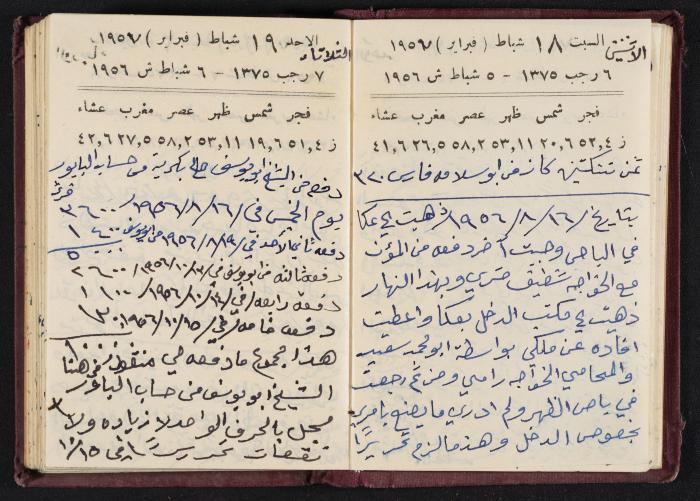 الاثنين
السبت ١٨ شباط ( فبراير ) ١٩٥٦
٦ رجب ١٣٧٥ - ٥ شباط ش ١٩٥٦
فجر شمس ظهر عصر مغرب عشاء
ز ٥٢,٤ ٢٠,٦ ٥٣,١١ ٥٨,٢ ٢٦,٥ ٤١,٦
ثمن تنكتين كاز من ابو سلامه فارس ٣٢٠
بتاريخ /١٦/ ٨/ ١٩٥٦/ ذهبت الى عكا
في الباص وجبت آخر دفعه من المؤن
مع الخواجه شفيق متري وبهذا النهار
ذهبت الى مكتب الدخل بعكا واعطيت
افاده عن ملكي بواسطة ابو محمد سعيد
والمحامي الخواجه رامي ومن ثم رجعت
في باص الظهر ولم ادري ما يصنع بامري
بخصوص الدخل وهذا ما لزم تحريرًا
الثلاثاء
الاحد ١٩ شباط ( فبراير ) ١٩٥٦
٧ رجب ١٣٧٥ - ٦ شباط ش ١٩٥٦
فجر شمس ظهر عصر مغرب عشاء
ز ٥١,٤ ١٩,٦ ٥٣,١١ ٥٨,٢ ٢٧,٥ ٤٢,٦
دفع من الشيخ ابو يوسف من حساب البابور
قرش
يوم الخميس في /١٦/ ٨/ ١٩٥٦/ ٣٦٠٠
دفعه ثاني الاحد في /١٩/ ٨/ ١٩٥٦ من ابو يوسف ١٤٠٠
٥
دفعه ثالثه من ابو يوسف في ١٩٥٦/١٠/ ٢٦٠٠
دفعه رابعه / في /١٠/ ١٩٥٦/ ١١٠٠
دفعه خامسه / في /١٥/ ١٠/ ١٩٥٦
هذا مجموع ما دفعه لي منقوله من هنا
الشيخ ابو يوسف من حساب البابور
مسجل بالحرف الواحد لا زياده ولا
نقصان تحريرًا في ١٠/١٥